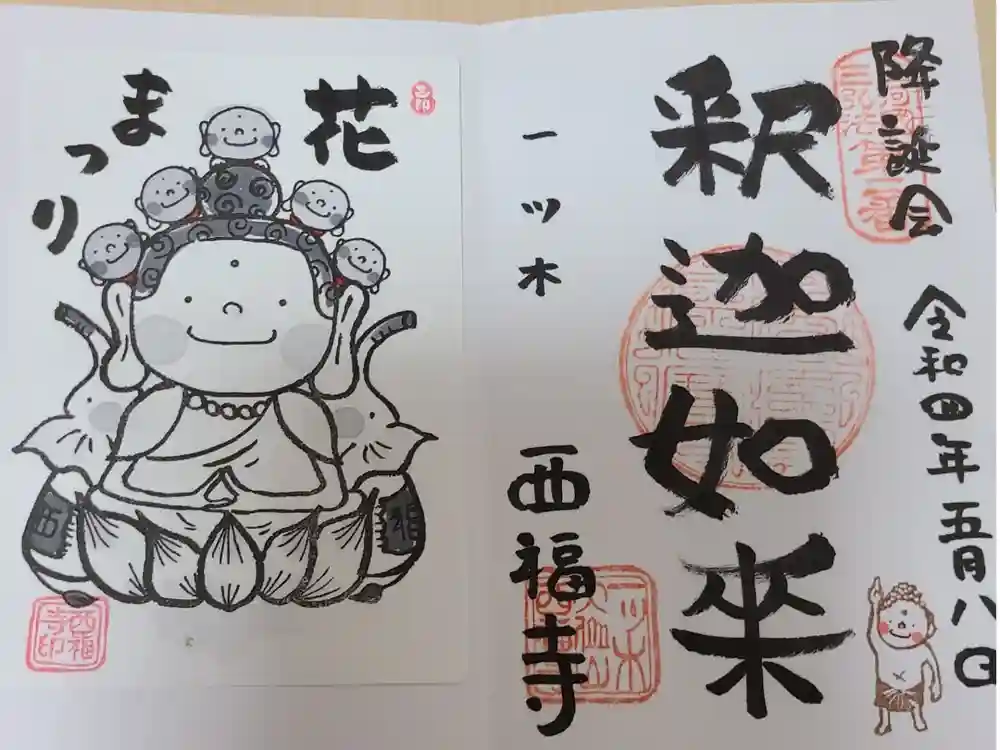 降誕会
令和四年五月八日
釈迦如来
一ツ木
西福寺
花
まつり
西
福
西福寺印